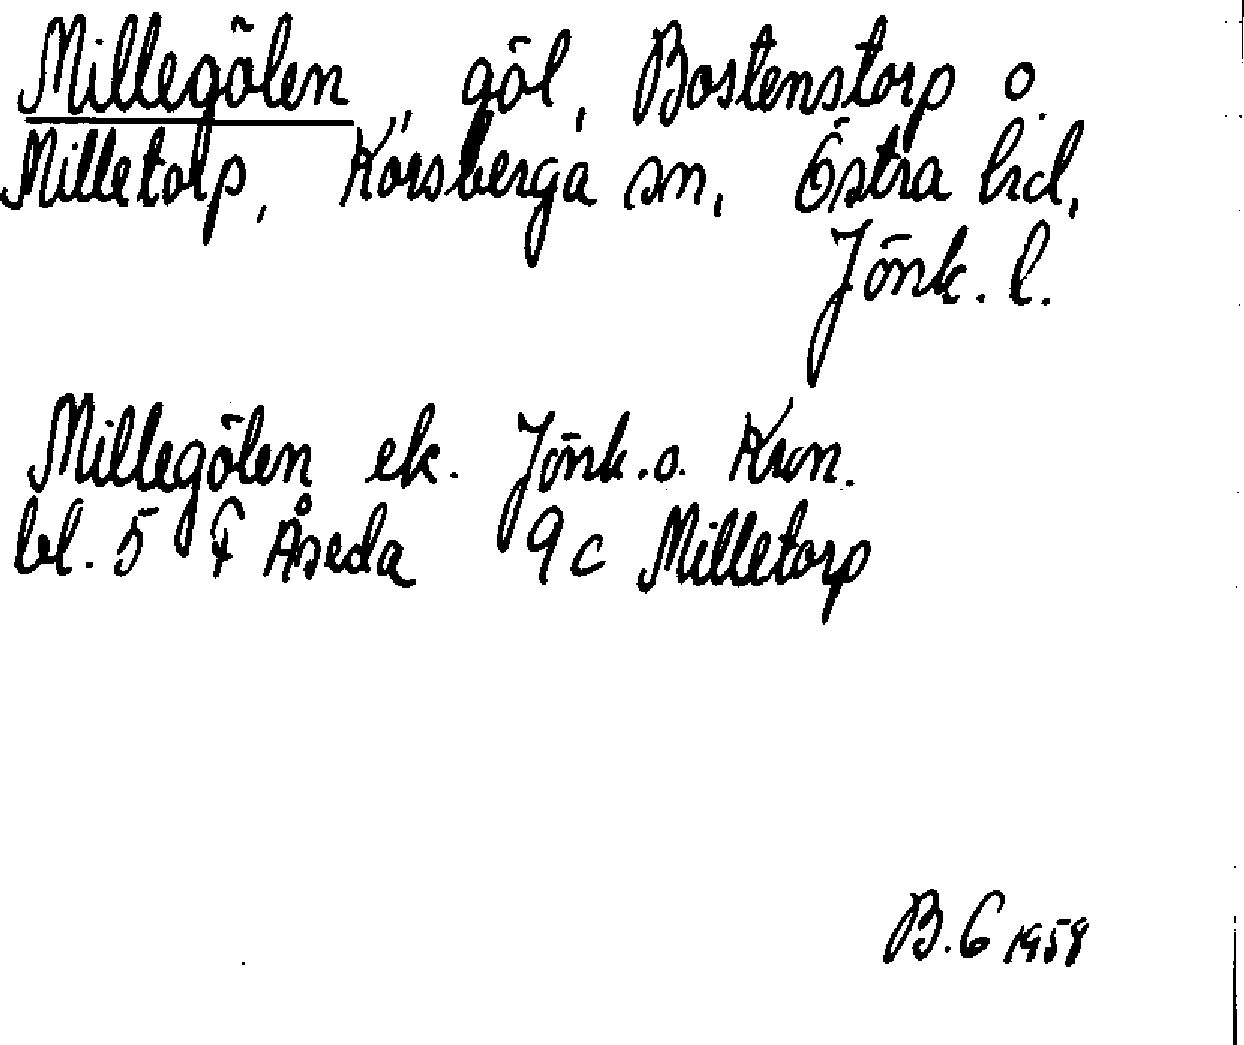 Millegölen, göl, Bostenstorp o.
Milletorp, Korsberga sn, Östra hd,
Jönk. l.
Millegölen ek. Jönk. o. Kron.
bl. 5 f Åseda 9c Milletorp
B.G 1959